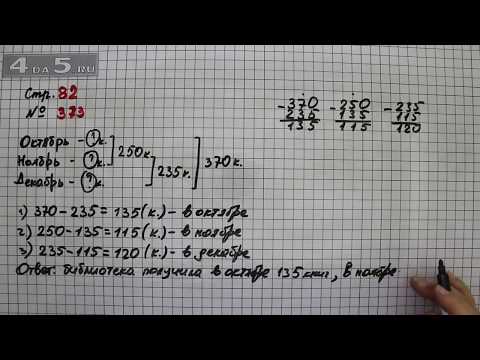 4 DA 5.RU
Стр. 82
№ 373
Октябрь - ? к.
Ноябрь - ? к.
Декабрь - ? к.
250 к.
235 к.
370 к.
- 370
235
135
- 250
135
115
- 235
115
120
1) 370 - 235 = 135 (к.) - в октябре
2) 250 - 135 = 115 (к.) - в ноябре
3) 235 - 115 = 120 (к.) - в декабре
Ответ: библиотека получила в октябре 135 книг, в ноябре